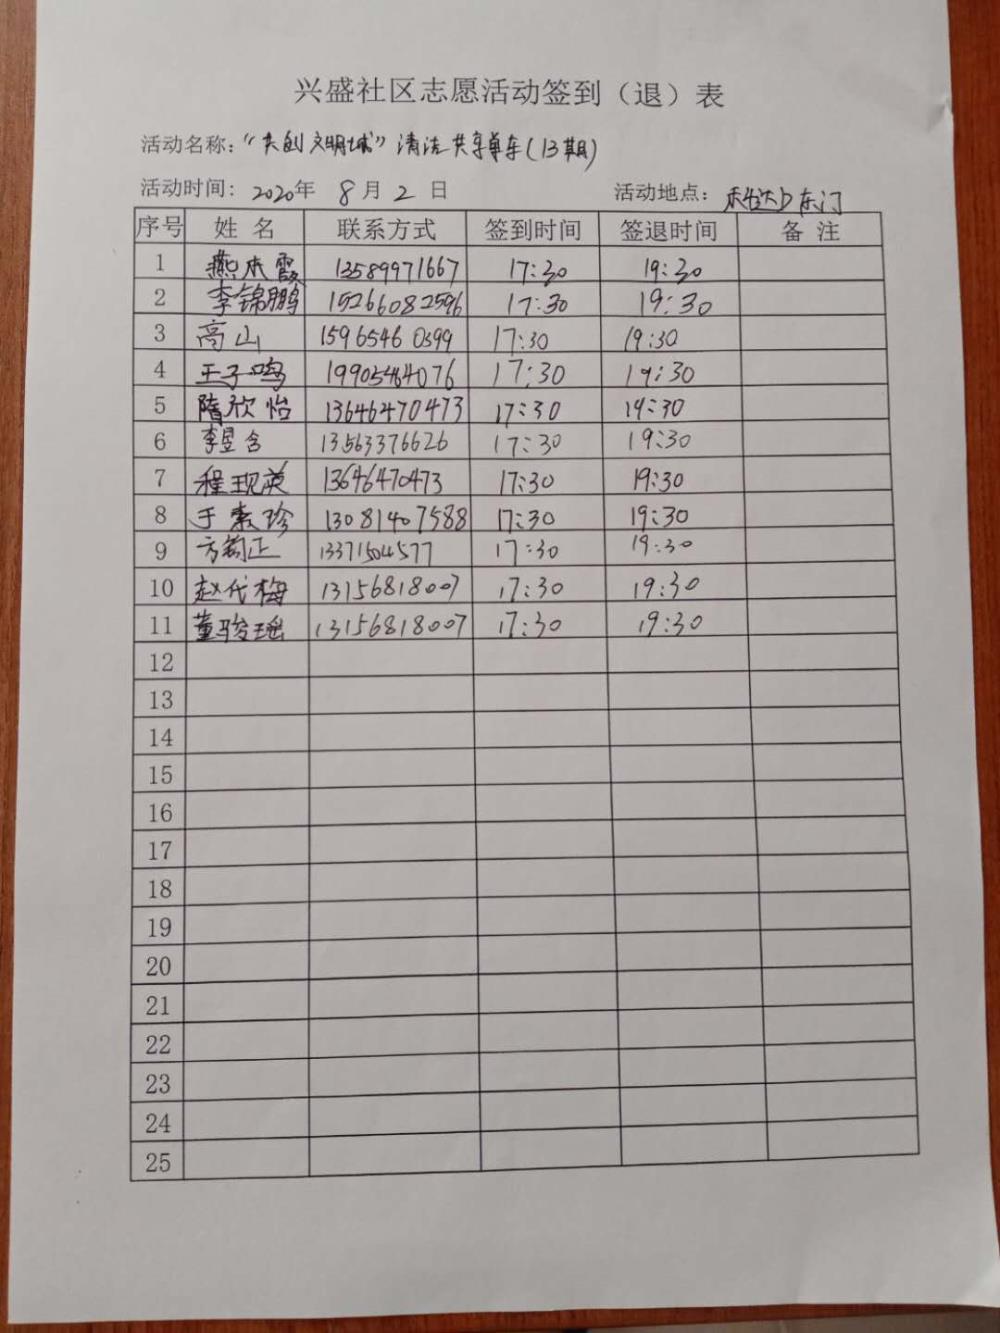 兴盛社区志愿活动签到（退）表
活动名称：“共创文明城”清洁共享单车（13期）
活动时间: 2020年 8月2日 活动地点: 东门
序号 姓名 联系方式 签到时间 签退时间 备注
1 燕本霞 13589971667 17:30 19:30
2 李锦鹏 15266082596 17:30 19:30
3 高山 15965460399 17:30 19:30
4 王子鸣 19905464076 17:30 19:30
5 隋欣怡 13646470473 17:30 19:30
6 李昱含 13563376626 17:30 19:30
7 程现英 13646470473 17:30 19:30
8 于素珍 13081407588 17:30 19:30
9 方韵正 13371504577 17:30 19:30
10 赵代梅 13156818007 17:30 19:30
11 董骏瑶 13156818007 17:30 19:30
12
13
14
15
16
17
18
19
20
21
22
23
24
25